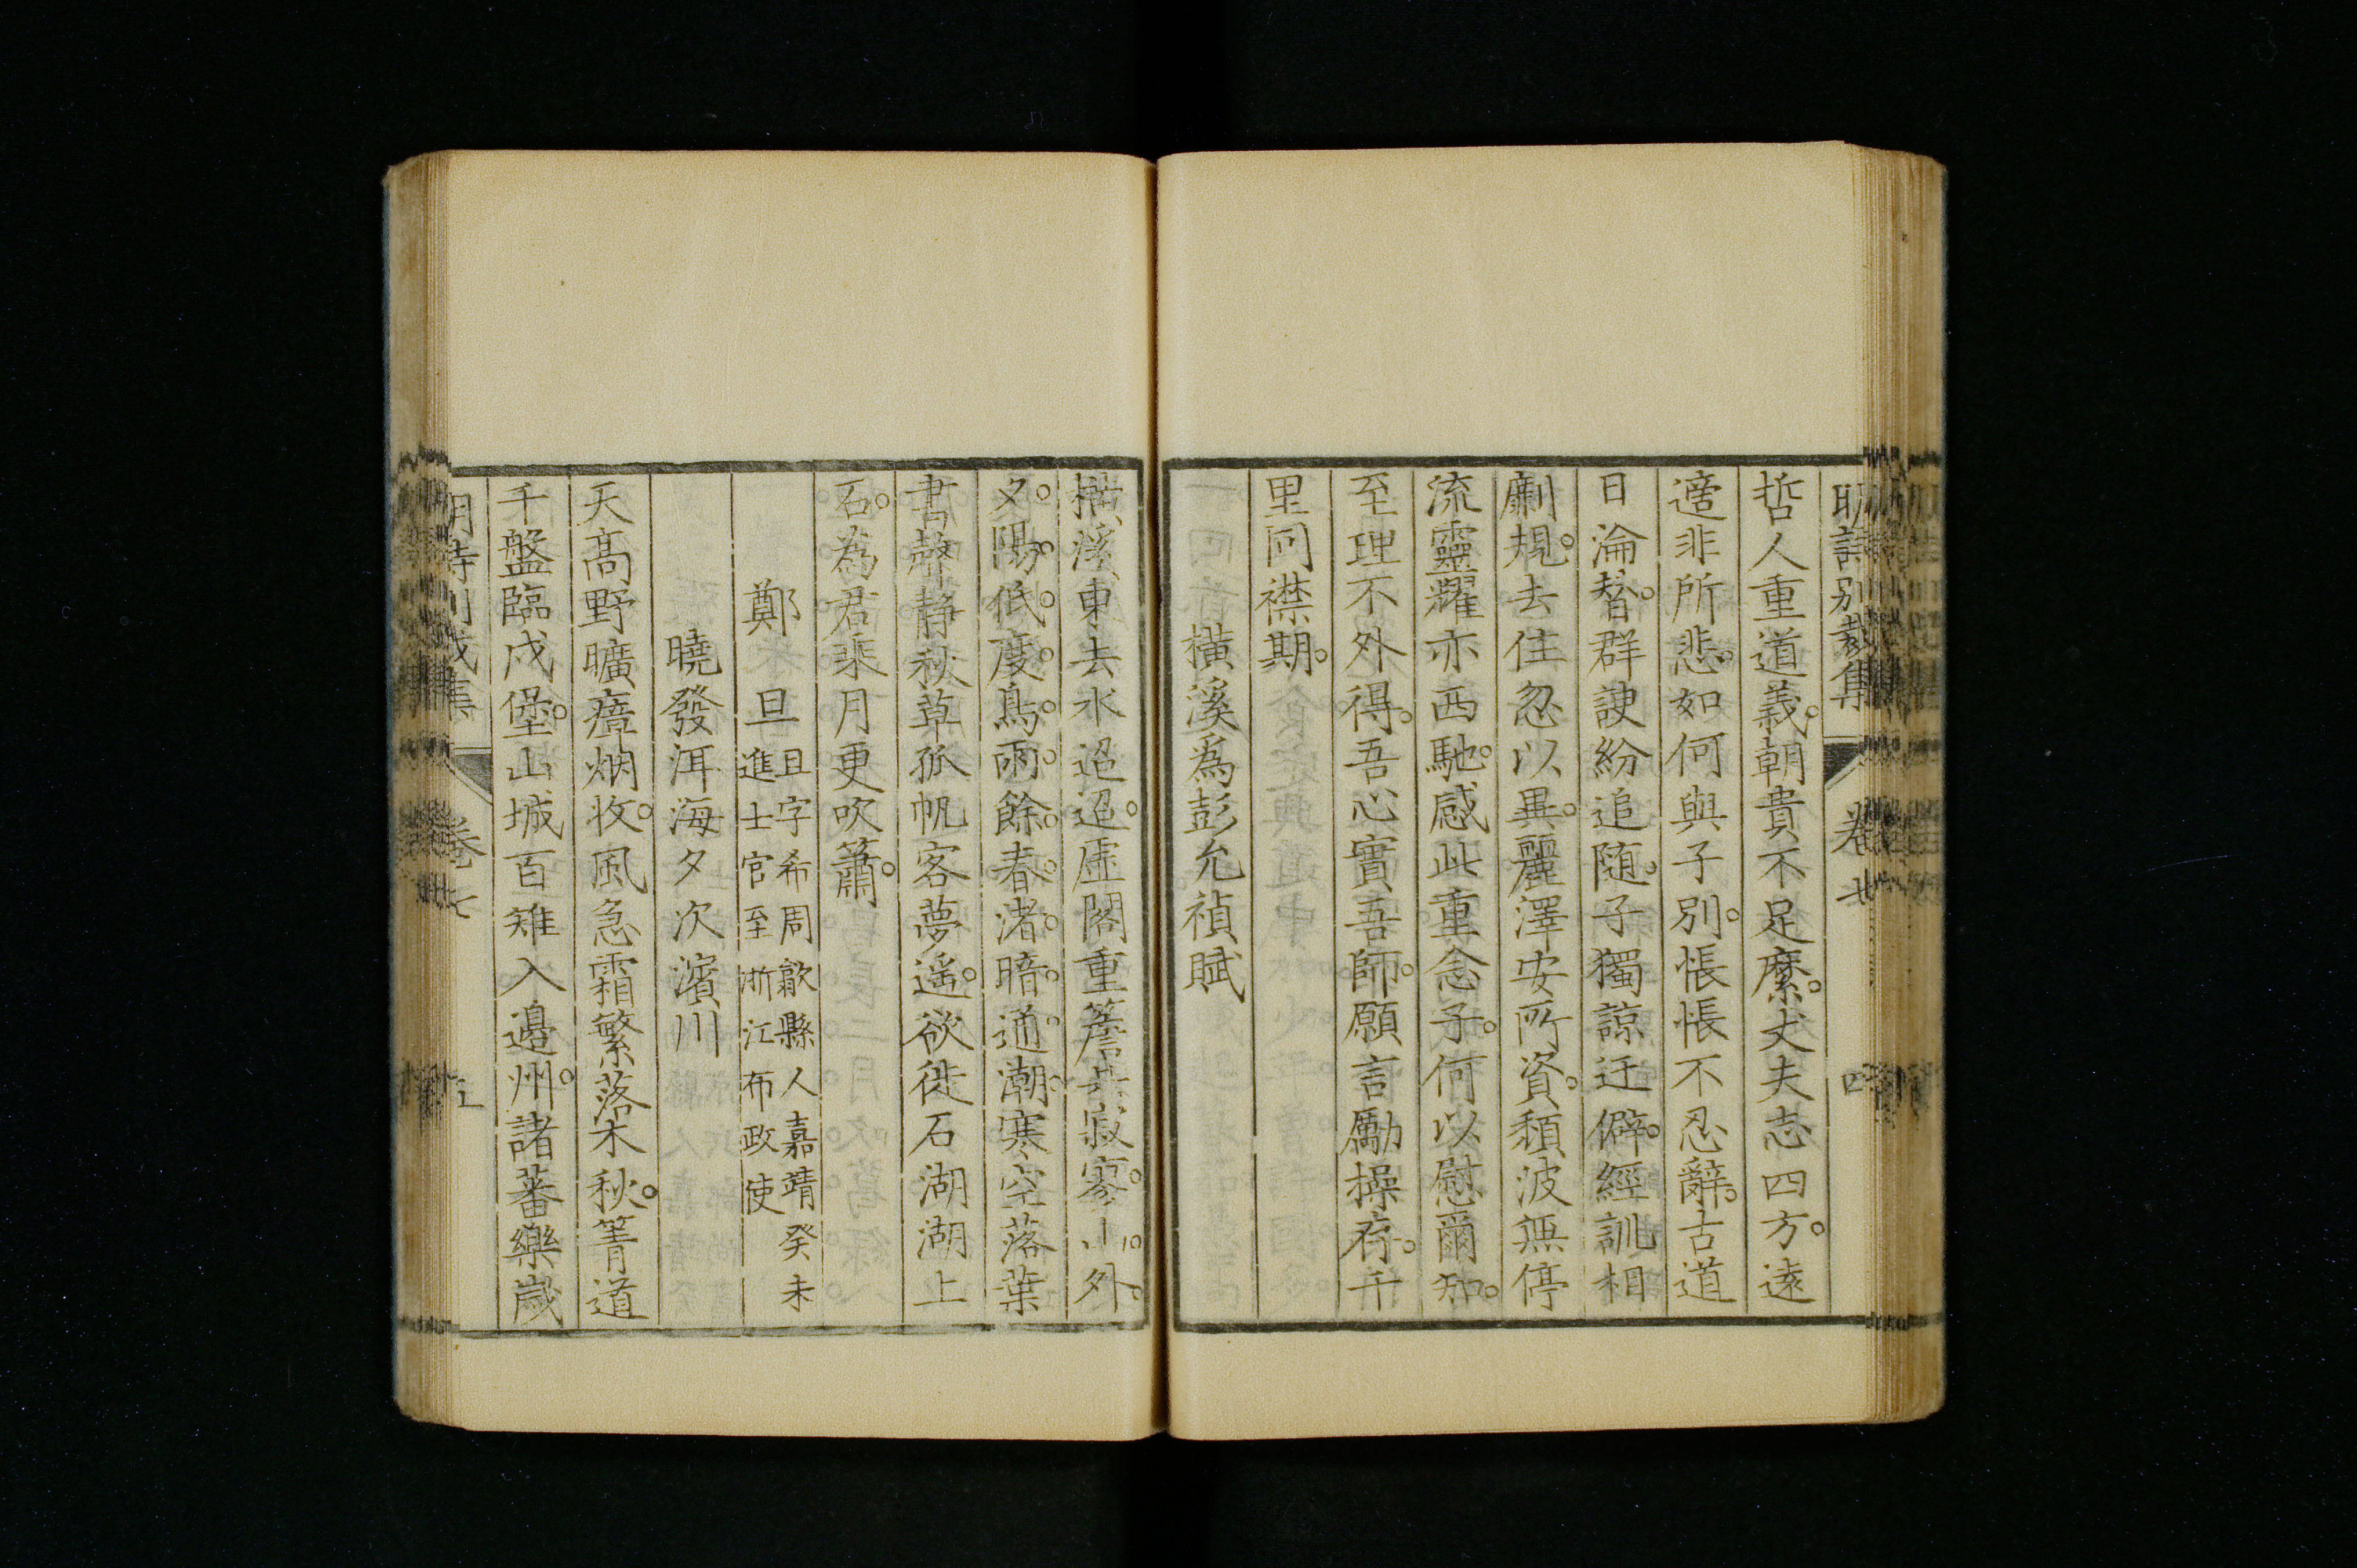 明詩別裁集 卷七 四
哲人重道義。朝貴不足縻。丈夫志四方。遠
適非所悲。如何與子別。悵悵不忍辭。古道
日淪替。群諛紛追随。子獨諒迂僻。經訓相
劘規。去住忽以異。麗澤安所資。頹波無停
流靈耀亦西馳。感此重念子。何以慰爾知。
至理不外得。吾心實吾師。願言勵操存。千
里同襟期。
橫溪為彭允禎賦
橫溪東去水迢迢。虛閣重簷共寂寥。山外
夕。陽。低。度。鳥。雨。餘。春。渚。暗。通。潮。寒空落葉
書聲靜秋草孤帆客夢遙。欲從石湖湖上
石。為君乘月更吹簫。
鄭 旦 旦字希周歙縣人嘉靖癸未
進士官至浙江布政使
曉發洱海夕次濱川
天高野曠瘴烟收。風急霜繁落木秋。箐道
千盤臨戍堡。山城百雉入邊州。諸蕃樂歲
明詩別裁集 卷七 五